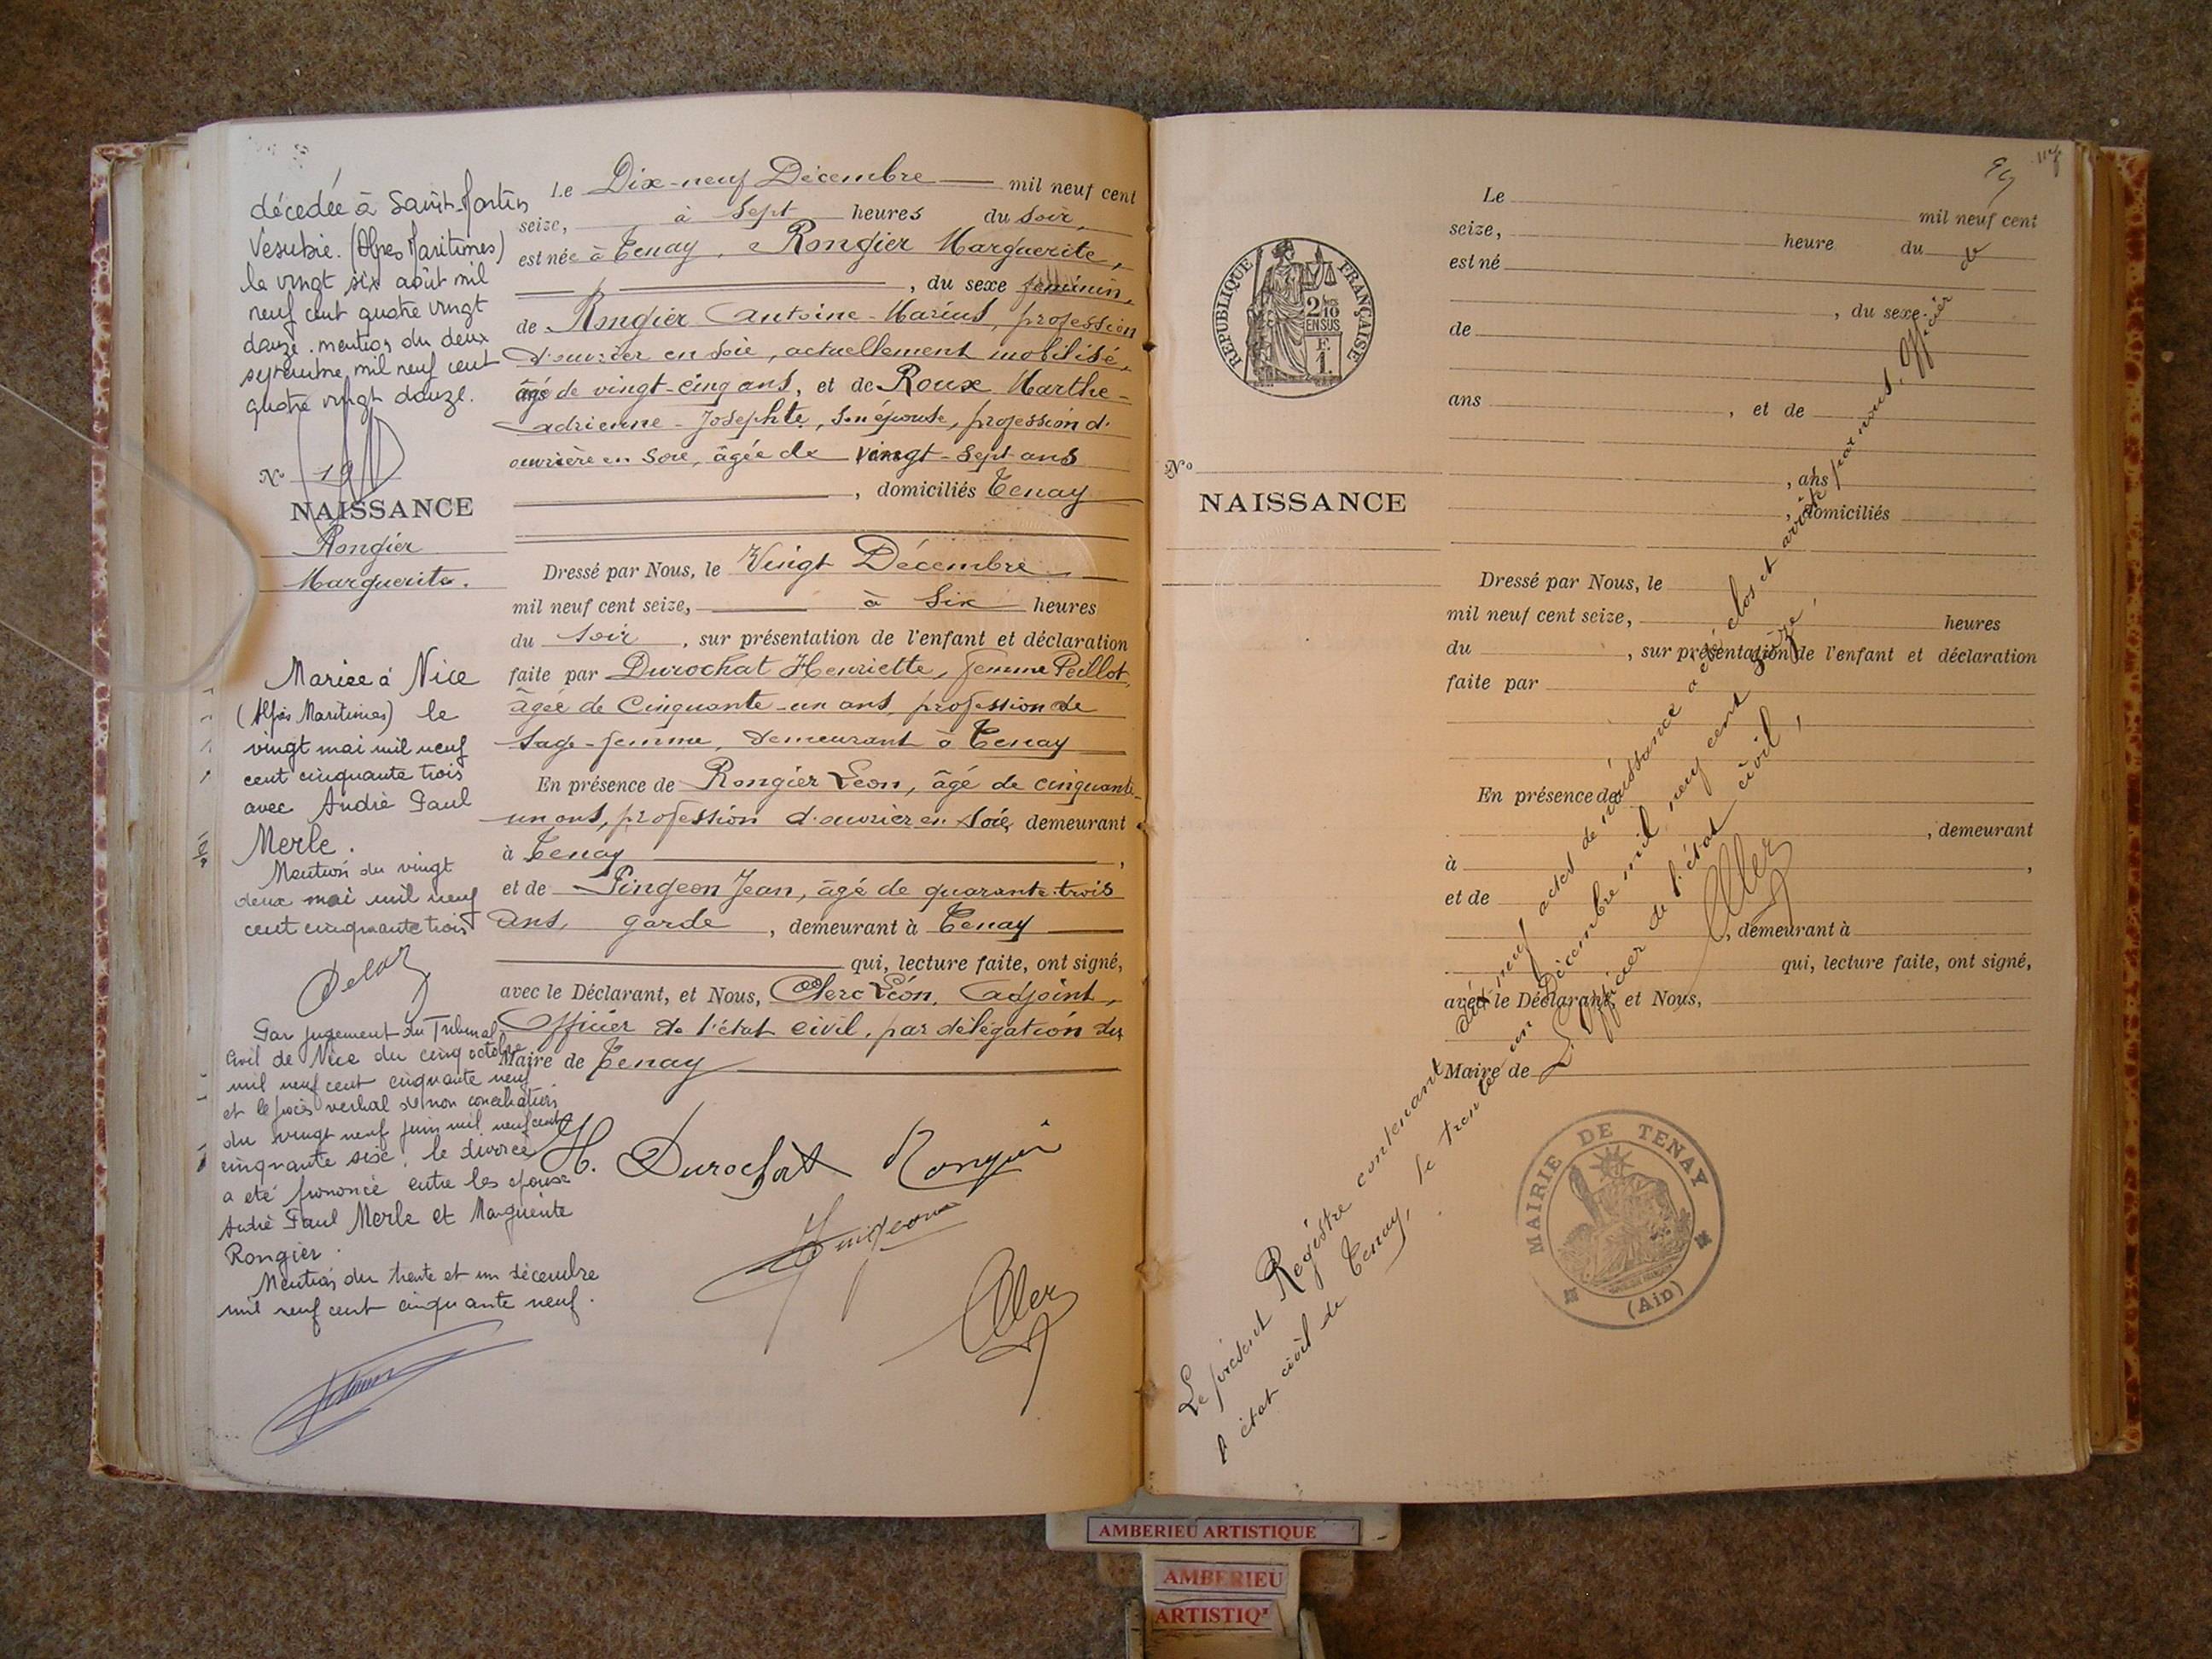 décedée à Saint-Martin
Vesubie. (Alpes Maritimes)
le vingt six août mil
neuf cent quatre vingt
douze. mention du deux
septembre mil neuf cent
quatre vingt douze.
No 19
NAISSANCE
Rongier
Marguerite.
Mariée à Nice
(Alpes Maritimes) le
vingt mai mil neuf
cent cinquante trois
avec André Paul
Merle.
Mention du vingt
deux mai mil neuf
cent cinquante trois
Par jugement du Tribunal
Civil de Nice du cinq octobre
mil neuf cent cinquante neuf
et le procès verbal de non conciliation
du vingt neuf juin mil neuf cent
cinquante six, le divorce
a été prononcé entre les époux
André Paul Merle et Marguerite
Rongier.
Mention du trente et un décembre
mil neuf cent cinquante neuf.
Le Dix-neuf Décembre mil neuf cent
seize, à Sept heures du soir,
est née à Tenay, Rongier Marguerite,
, du sexe féminin,
de Rongier Antoine-Marius, profession
d'ouvrier en soie, actuellement mobilisé,
âgé de vingt-cinq ans, et de Roux Marthe-
Adrienne-Josephte, son épouse, profession d'
ouvrière en soie, âgée de vingt-sept ans
, domiciliés Tenay
Dressé par Nous, le Vingt Décembre
mil neuf cent seize, à Six heures
du soir, sur présentation de l'enfant et déclaration
faite par Durochat Henriette, femme Peillot,
âgée de Cinquante-un ans, profession de
Sage-femme, demeurant à Tenay
En présence de Rongier Léon, âgé de cinquante-
un ans, profession d'ouvrier en soie, demeurant
à Tenay ,
et de Pingeon Jean, âgé de quarante-trois
ans, garde , demeurant à Tenay
qui, lecture faite, ont signé,
avec le Déclarant, et Nous, Clerc Léon, Adjoint,
Officier de l'état civil, par délégation du
Maire de Tenay
H. Durochat Rongier
Pingeon
RÉPUBLIQUE FRANÇAISE
2/10
EN SUS
F.
1.
No
NAISSANCE
Le mil neuf cent
seize, heure du
est né
, du sexe
de
ans , et de
, ans
, domiciliés
Dressé par Nous, le
mil neuf cent seize, heures
du , sur présentation de l'enfant et déclaration
faite par
En présence de
, demeurant
à ,
et de
, demeurant à
qui, lecture faite, ont signé,
avec le Déclarant, et Nous,
Maire de
Le présent Registre contenant dix neuf actes de naissance a été clos et arrêté par nous, Officier de
l'état civil de Tenay, le trente un Décembre mil neuf cent seize.
L'Officier de l'état civil,
MAIRIE DE TENAY
(Ain)
AMBERIEU ARTISTIQUE
AMBERIEU
ARTISTIQ